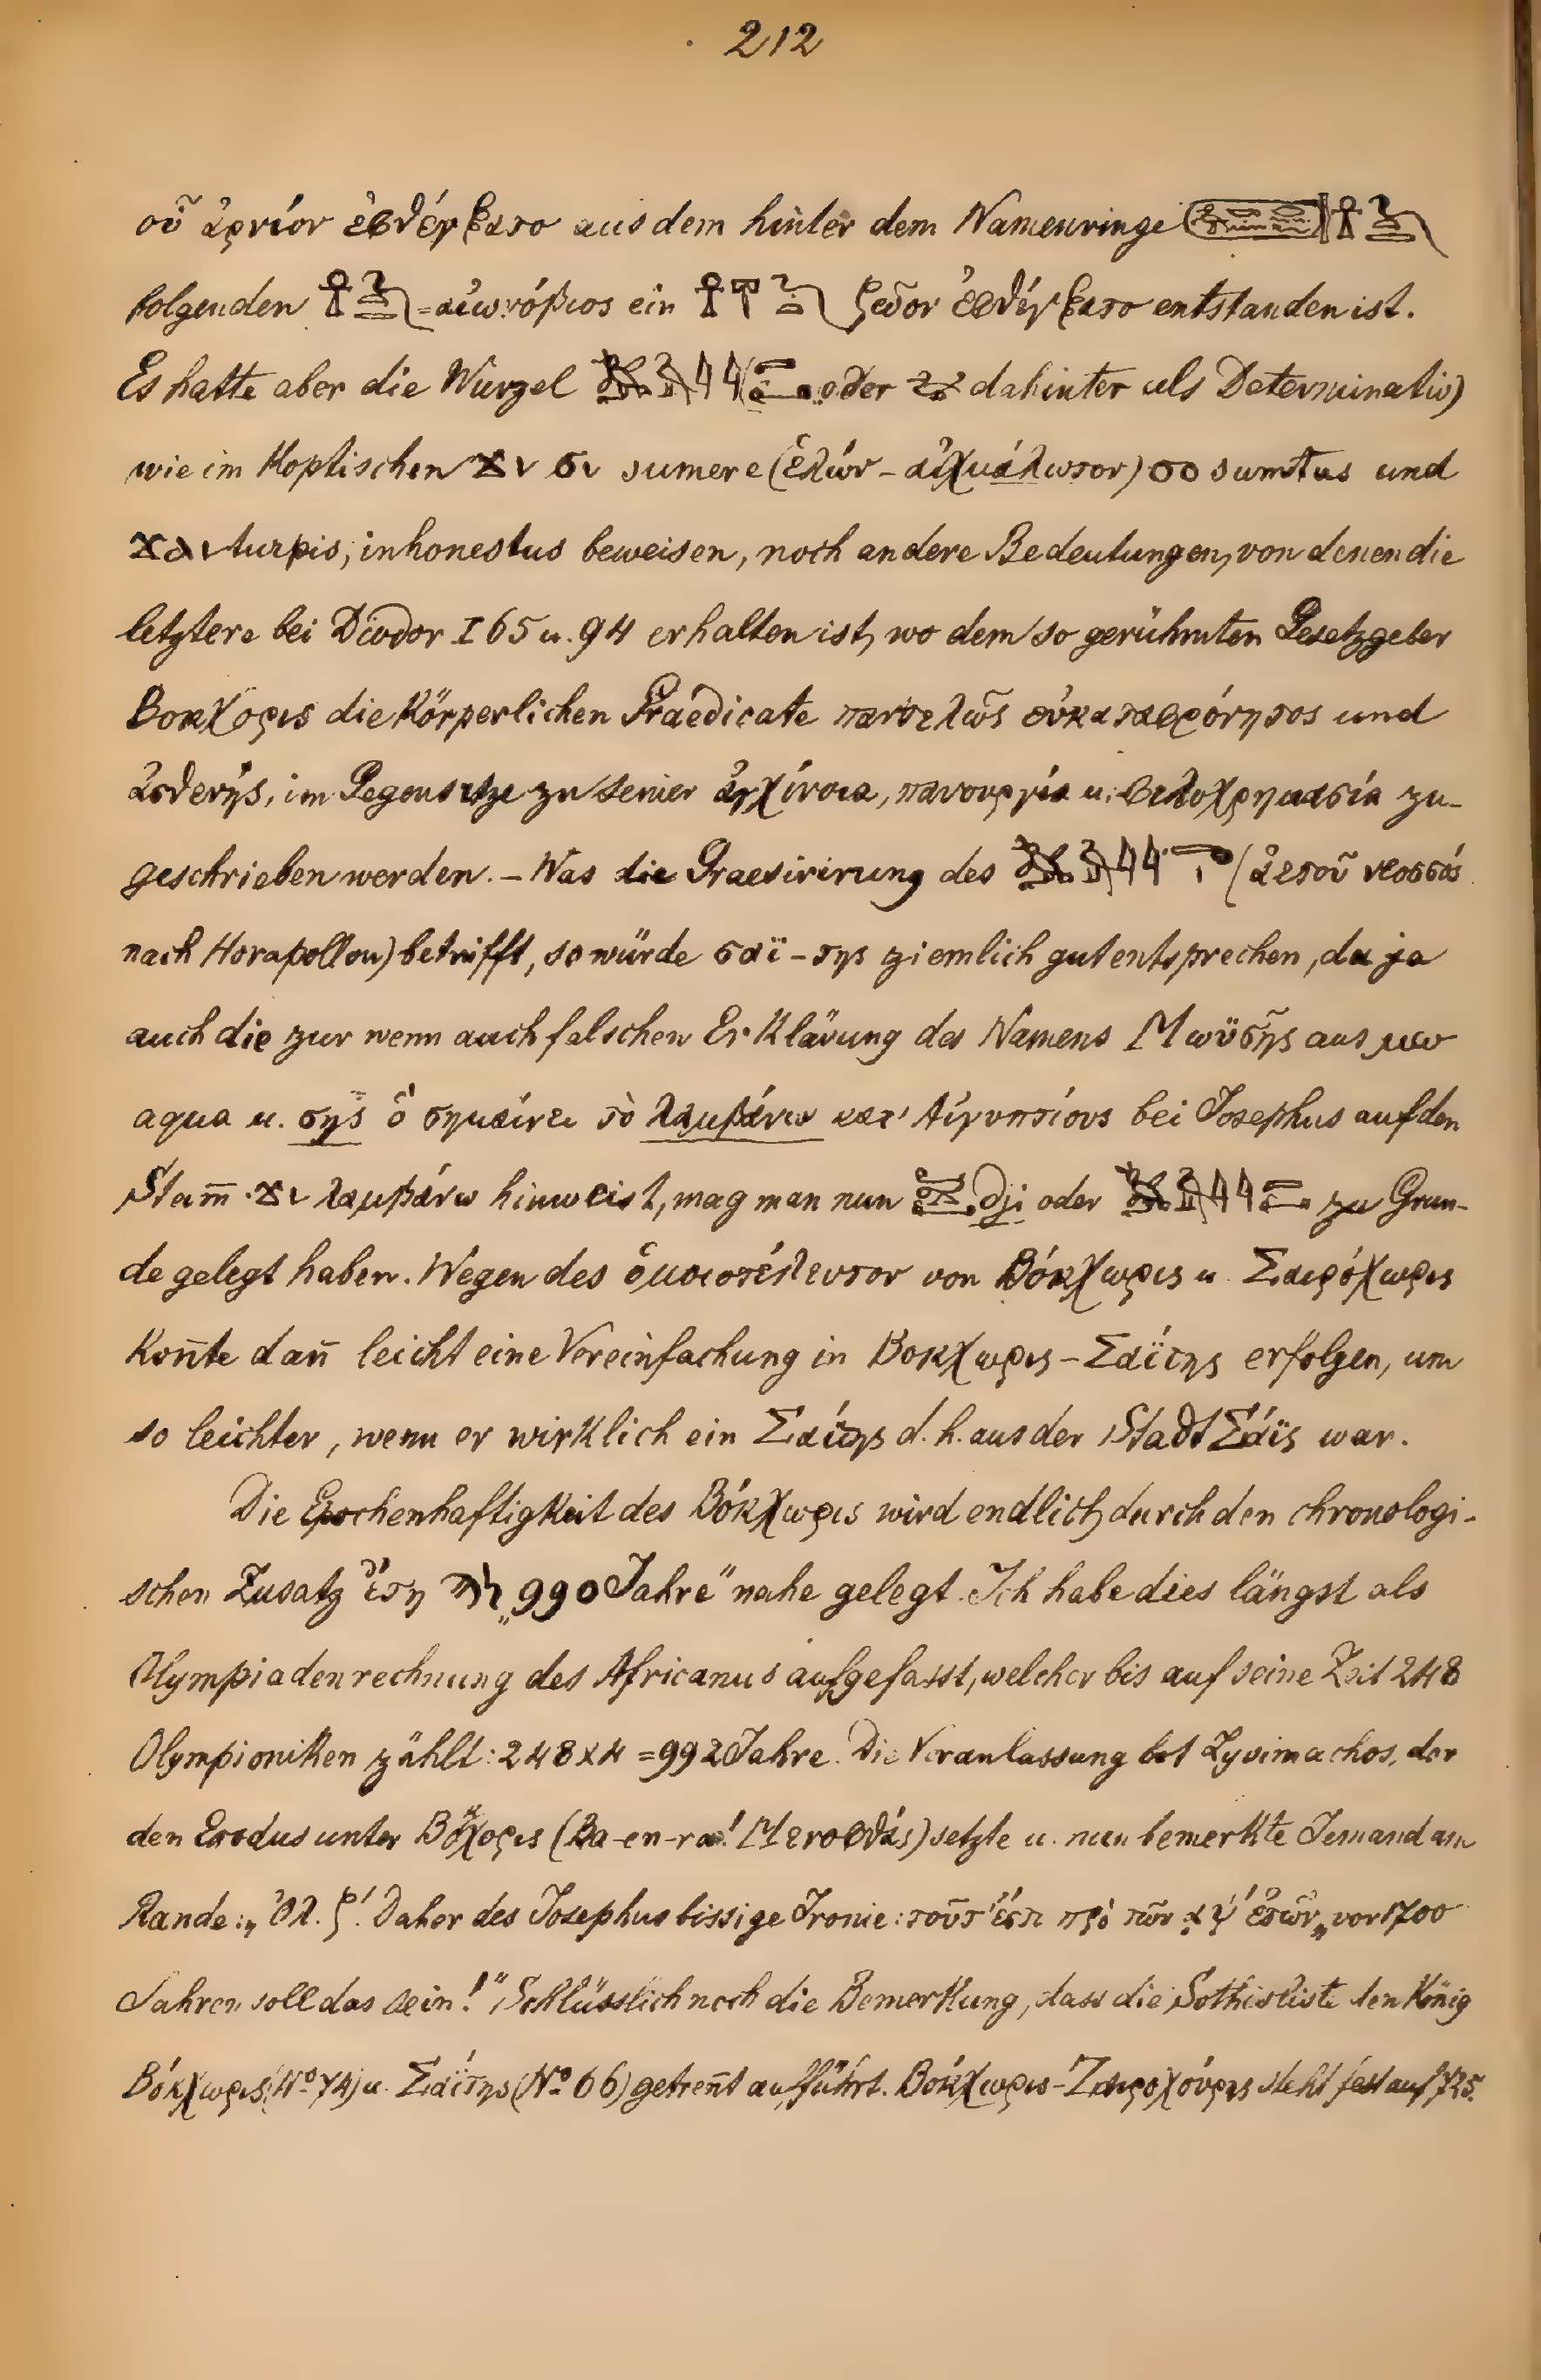 212
οὗ ἀρνίον ἐφθέγξατο aus dem hinter dem Namenringe
folgenden = αἰωνόβιος ein ζῶον ἐφθέγξατο entstanden ist.
Es hatte aber die Wurzel oder dahinter als Determinativ)
wie im Koptischen ϫⲓ ϭⲓ sumere (ἑλών – αἰχμάλωτον) ϭⲟ sumtus und
turpis, inhonestus beweisen, noch andere Bedeutungen, von denen die
letztere bei Diodor I 65 u. 94 erhalten ist, wo dem so gerühmten Gesetzgeber
Βοκχορις die Körperlichen Praedicate παντελῶς εὐκαταφρόνητος und
ἀσθενής, im Gegensatze zu seiner ἀγχίνοια, πανουργία u. φιλοχρηματία zu-
geschrieben werden. – Was die Praesirirung des (ἀετοῦ νεοσσός
nach Horapollon) betrifft, so würde σαϊ-της ziemlich gut entsprechen, da ja
auch die zur wenn auch falschen Erklärung des Namens Μωϋσῆς aus μω
aqua u. σης ὃ σημαίνει τὸ λαμβάνω κατ' Αἰγυπτίους bei Josephus auf den
Stam̄ ϫⲓ λαμβάνω hinweist, mag man nun dji oder zu Grun-
de gelegt haben. Wegen des ὁμοιοτέλευτον von Βόκχωρις u. Σαιρόχωρις
Kon̄te dan̄ leicht eine Vereinfachung in Βοκχωρις – Σαΐτης erfolgen, um
so leichter, wenn er wirklich ein Σαΐτης d. h. aus der Stadt Σάϊς war.
Die Epochenhaftigkeit des Βόκχωρις wird endlich durch den chronologi-
schen Zusatz ἔτη „990 Jahre" nahe gelegt. Ich habe dies längst als
Olympiadenrechnung des Africanus aufgefasst, welcher bis auf seine Zeit 248
Olympioniken zählt: 248 x 4 = 992 Jahre. Die Veranlassung bot Lysimachos, der
den Exodus unter Βόχορις (Ba-en-ra! Μενοφθάς) setzte u. nun bemerkte Jemand am
Rande: „Ὀλ. ζ'. Daher des Josephus bissige Ironie: τοῦτ' ἔστι πρὸ τῶν ͵αψ' ἐτῶν „vor 1700
Jahren soll das sein!" Schlüsslich noch die Bemerkung, dass die Sothisliste den König
Βόκχωρις (No 74) u. Σαΐτης (No 66) getren̄t aufführt. Βόκχωρις – Σαιροχόυρις steht fest auf 725.